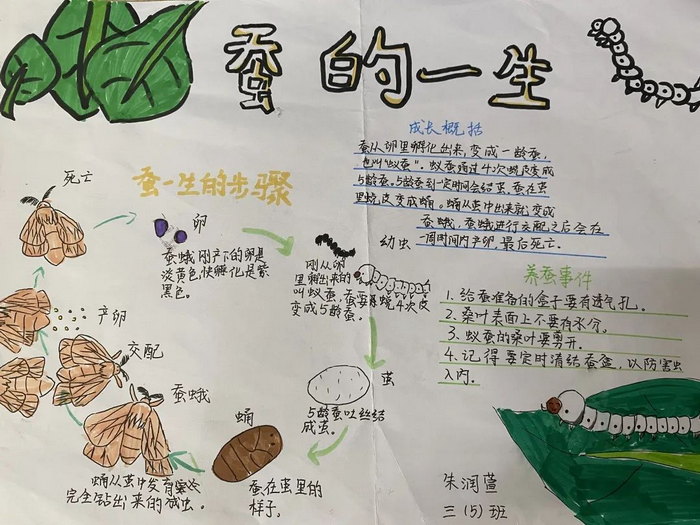 蚕的一生
成长概括
蚕从卵里孵化出来,变成一龄蚕,
也叫“蚁蚕”。蚁蚕通过4次蜕皮变成
5龄蚕。5龄蚕到一定时间会结茧,蚕在茧
里蜕皮变成蛹。蛹从茧中出来就变成
蚕蛾,蚕蛾进行交配之后会在
一周时间内产卵,最后死亡。
蚕一生的步骤
死亡
卵
蚕蛾刚产下的卵是
淡黄色,快孵化是紫
黑色。
幼虫
刚从卵
里孵出来的
叫蚁蚕,蚕要蜕4次皮
变成5龄蚕。
养蚕事件
1.给蚕准备的盒子要有透气孔。
2.桑叶表面上不要有水分。
3.蚁蚕的桑叶要剪开。
4.记得要定时清结蚕盒,以防害虫
入内。
产卵
交配
蚕蛾
蛹从茧中发育
完全钻出来的成虫。
蛹
蚕在茧里的
样子。
茧
5龄蚕吐丝结
成茧。
朱润萱
三(5)班